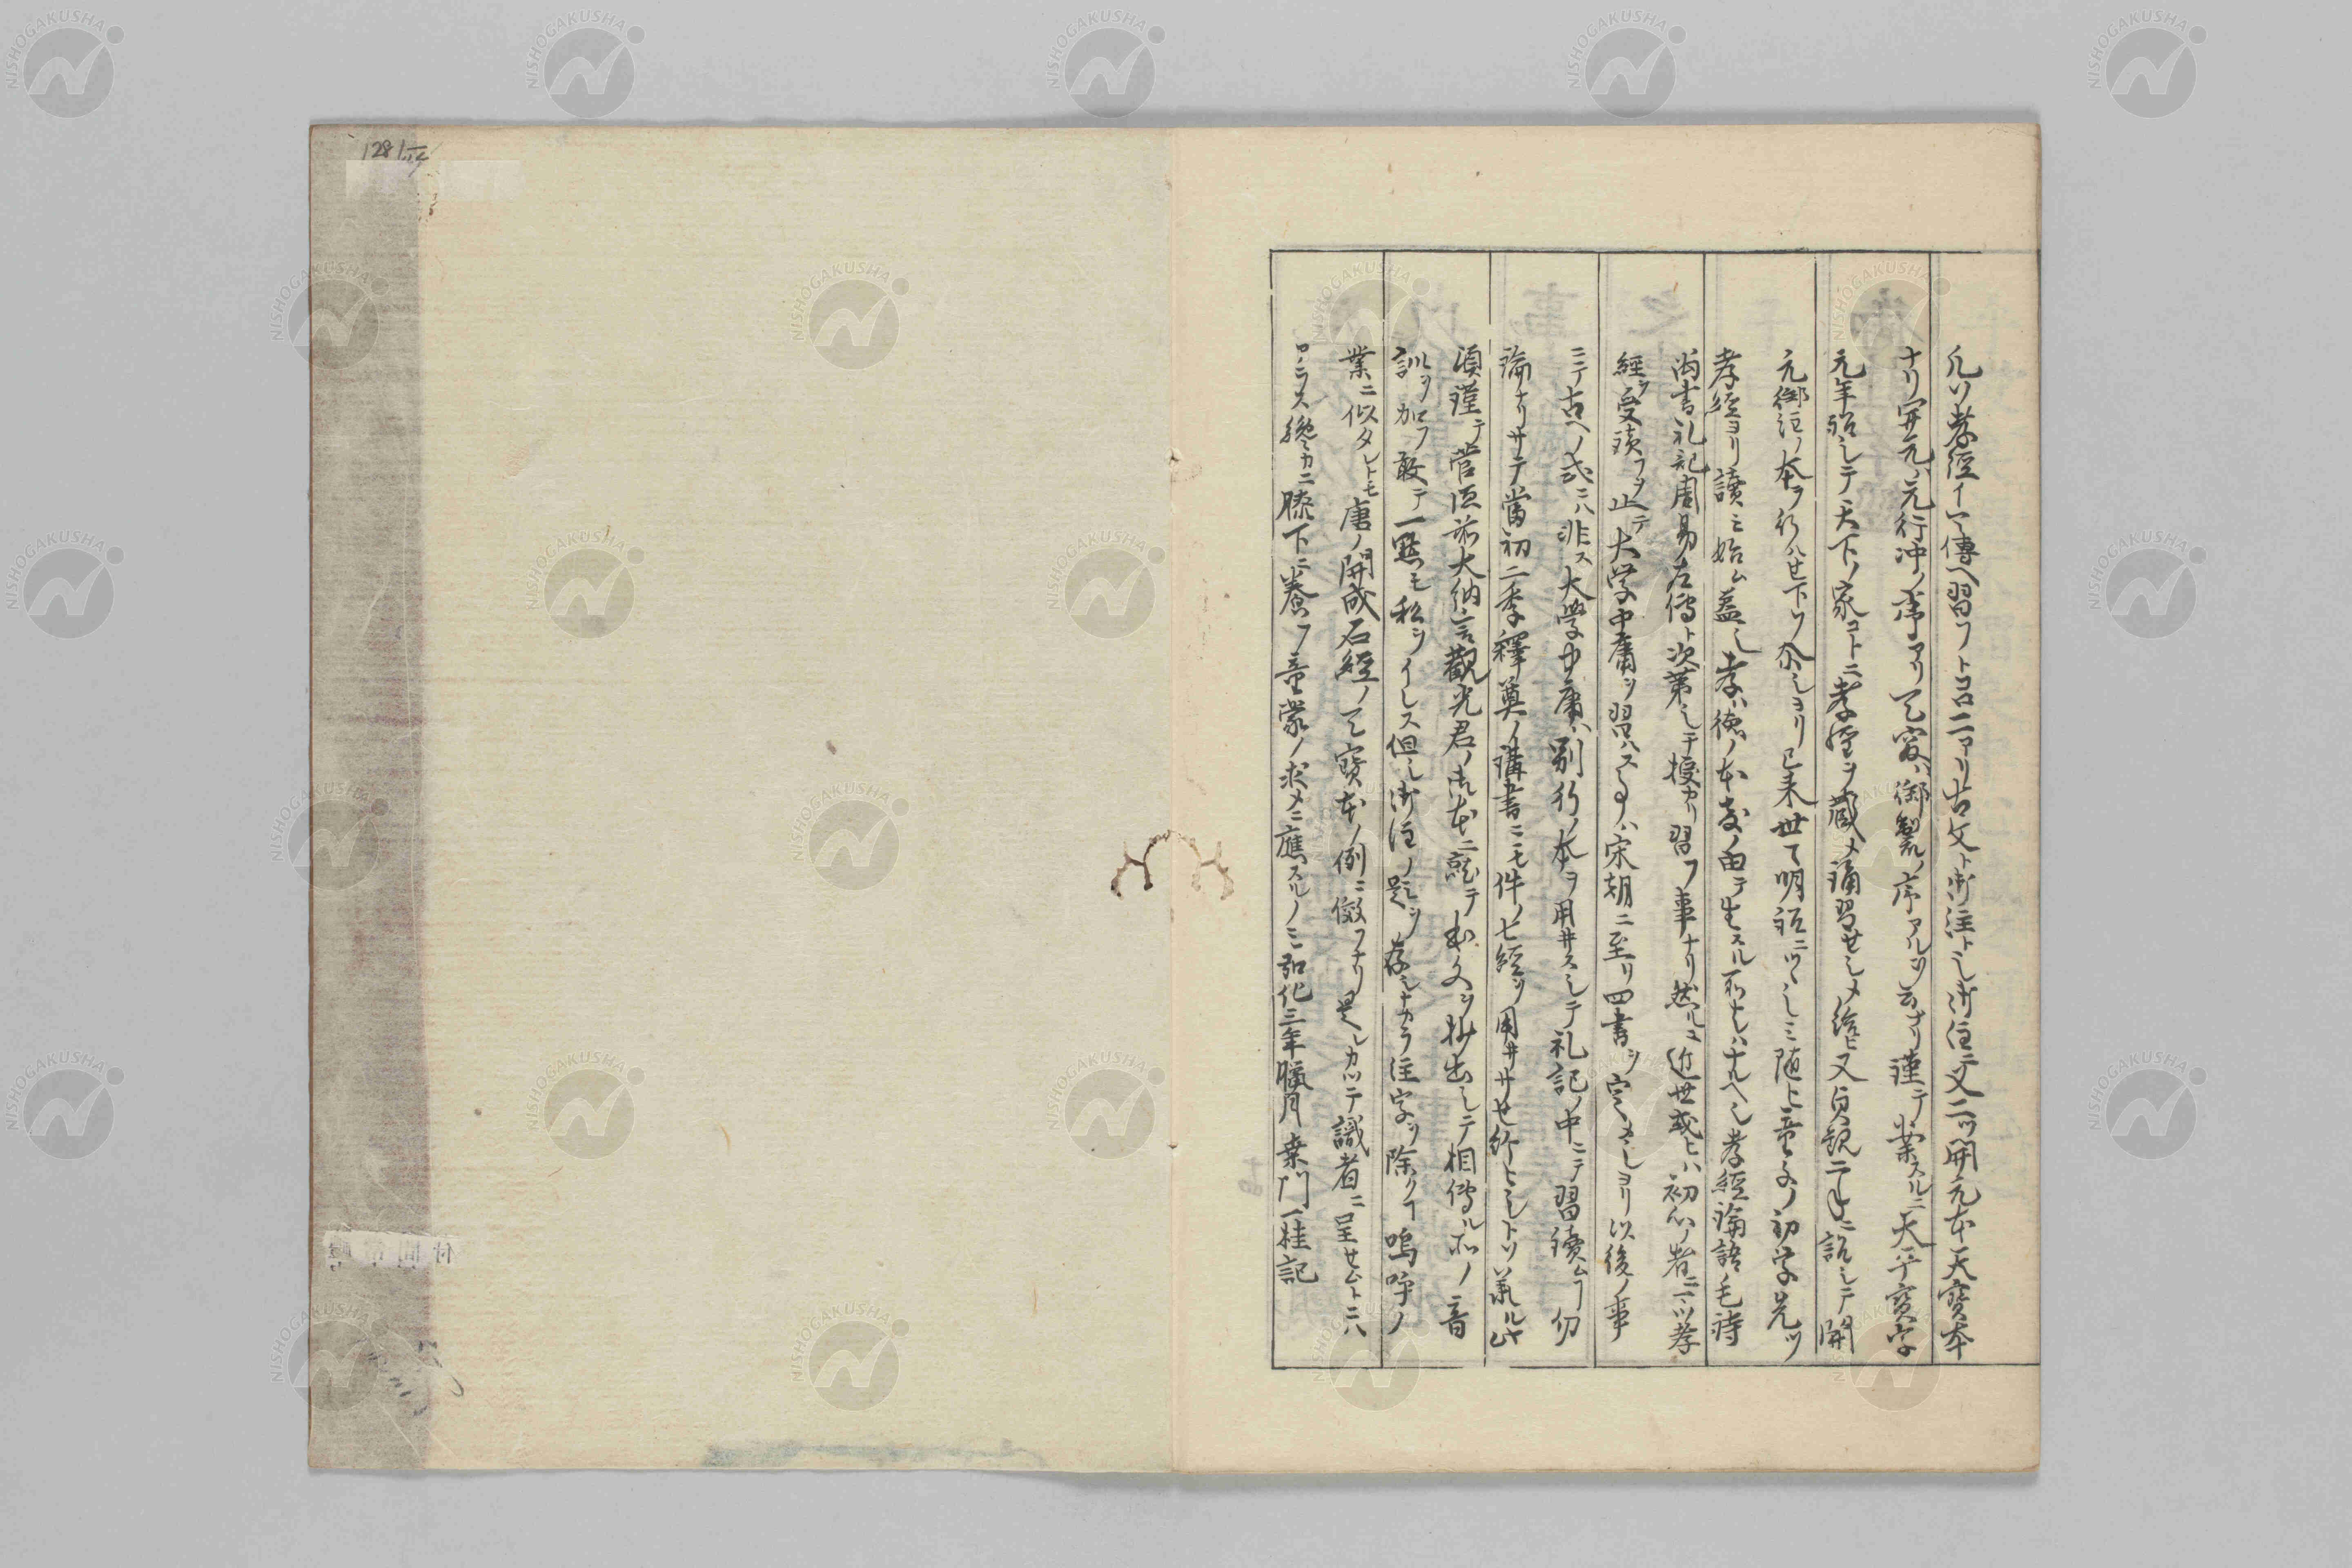 凡ソ孝経イマ傳ヘ習フトコロ二アリ古文ト御注ト也御注ニ又二ツ開元本天寶本
ナリ開元ハ元行冲ノ序アリ天寳ハ御製ノ序アルヲ云ナリ謹テ業スルニ天平寳字
元年詔シテ天下ノ家コトニ孝経ヲ蔵メ誦習セシメ給ヒ又貞観二年ニ詔シテ開
元御注ノ本ヲ行ハセ下ツ給ヒシヨリ已来世々明詔ニツヽシミ随ヒ童蒙ノ初学先ツ
孝経ヨリ讀ミ始ム蓋シ孝ハ徳ノ本教ノ由テ生スル所ナレハナルヘシ孝經論語毛詩
尚書礼記周易左傳ト次第シテ授カリ習フ事ナリ然ルヲ近世或ヒハ初心ノ者ニハ孝
經ヲ受讀フヿ止テ大学中庸ヲ習ハスヿハ宋朝ニ至リ四書ヲ定メシヨリ以後ノ事
ニテ古ヘノ式ニハ非ス大學中庸ハ別行ノ本ヲ用井スシテ礼記ノ中ニテ習讀ムヿ勿
論ナリサテ當初二季釋奠ノ講書ニモ件ノ七経ヲ用井サセ給ヒシトソ
須謹テ菅原前大納言觀光君ノ御本ニ就テ本文ヲ抄出シテ相傳ル所ノ音
訓ヲ加フ敢テ一點モ私ヲイレス但シ御注ノ題ヲ存シナカラ注字ヲ除クヿ嗚呼ノ
業ニ似タレトモ唐ノ開成石経ノ天寳本ノ例ニ倣フナリ是レカツテ識者ニ呈セムトニハ
アラス纔カニ膝下ニ養フ童蒙ノ求メニ應スルノミ弘化三年臘月桑門一桂記
128